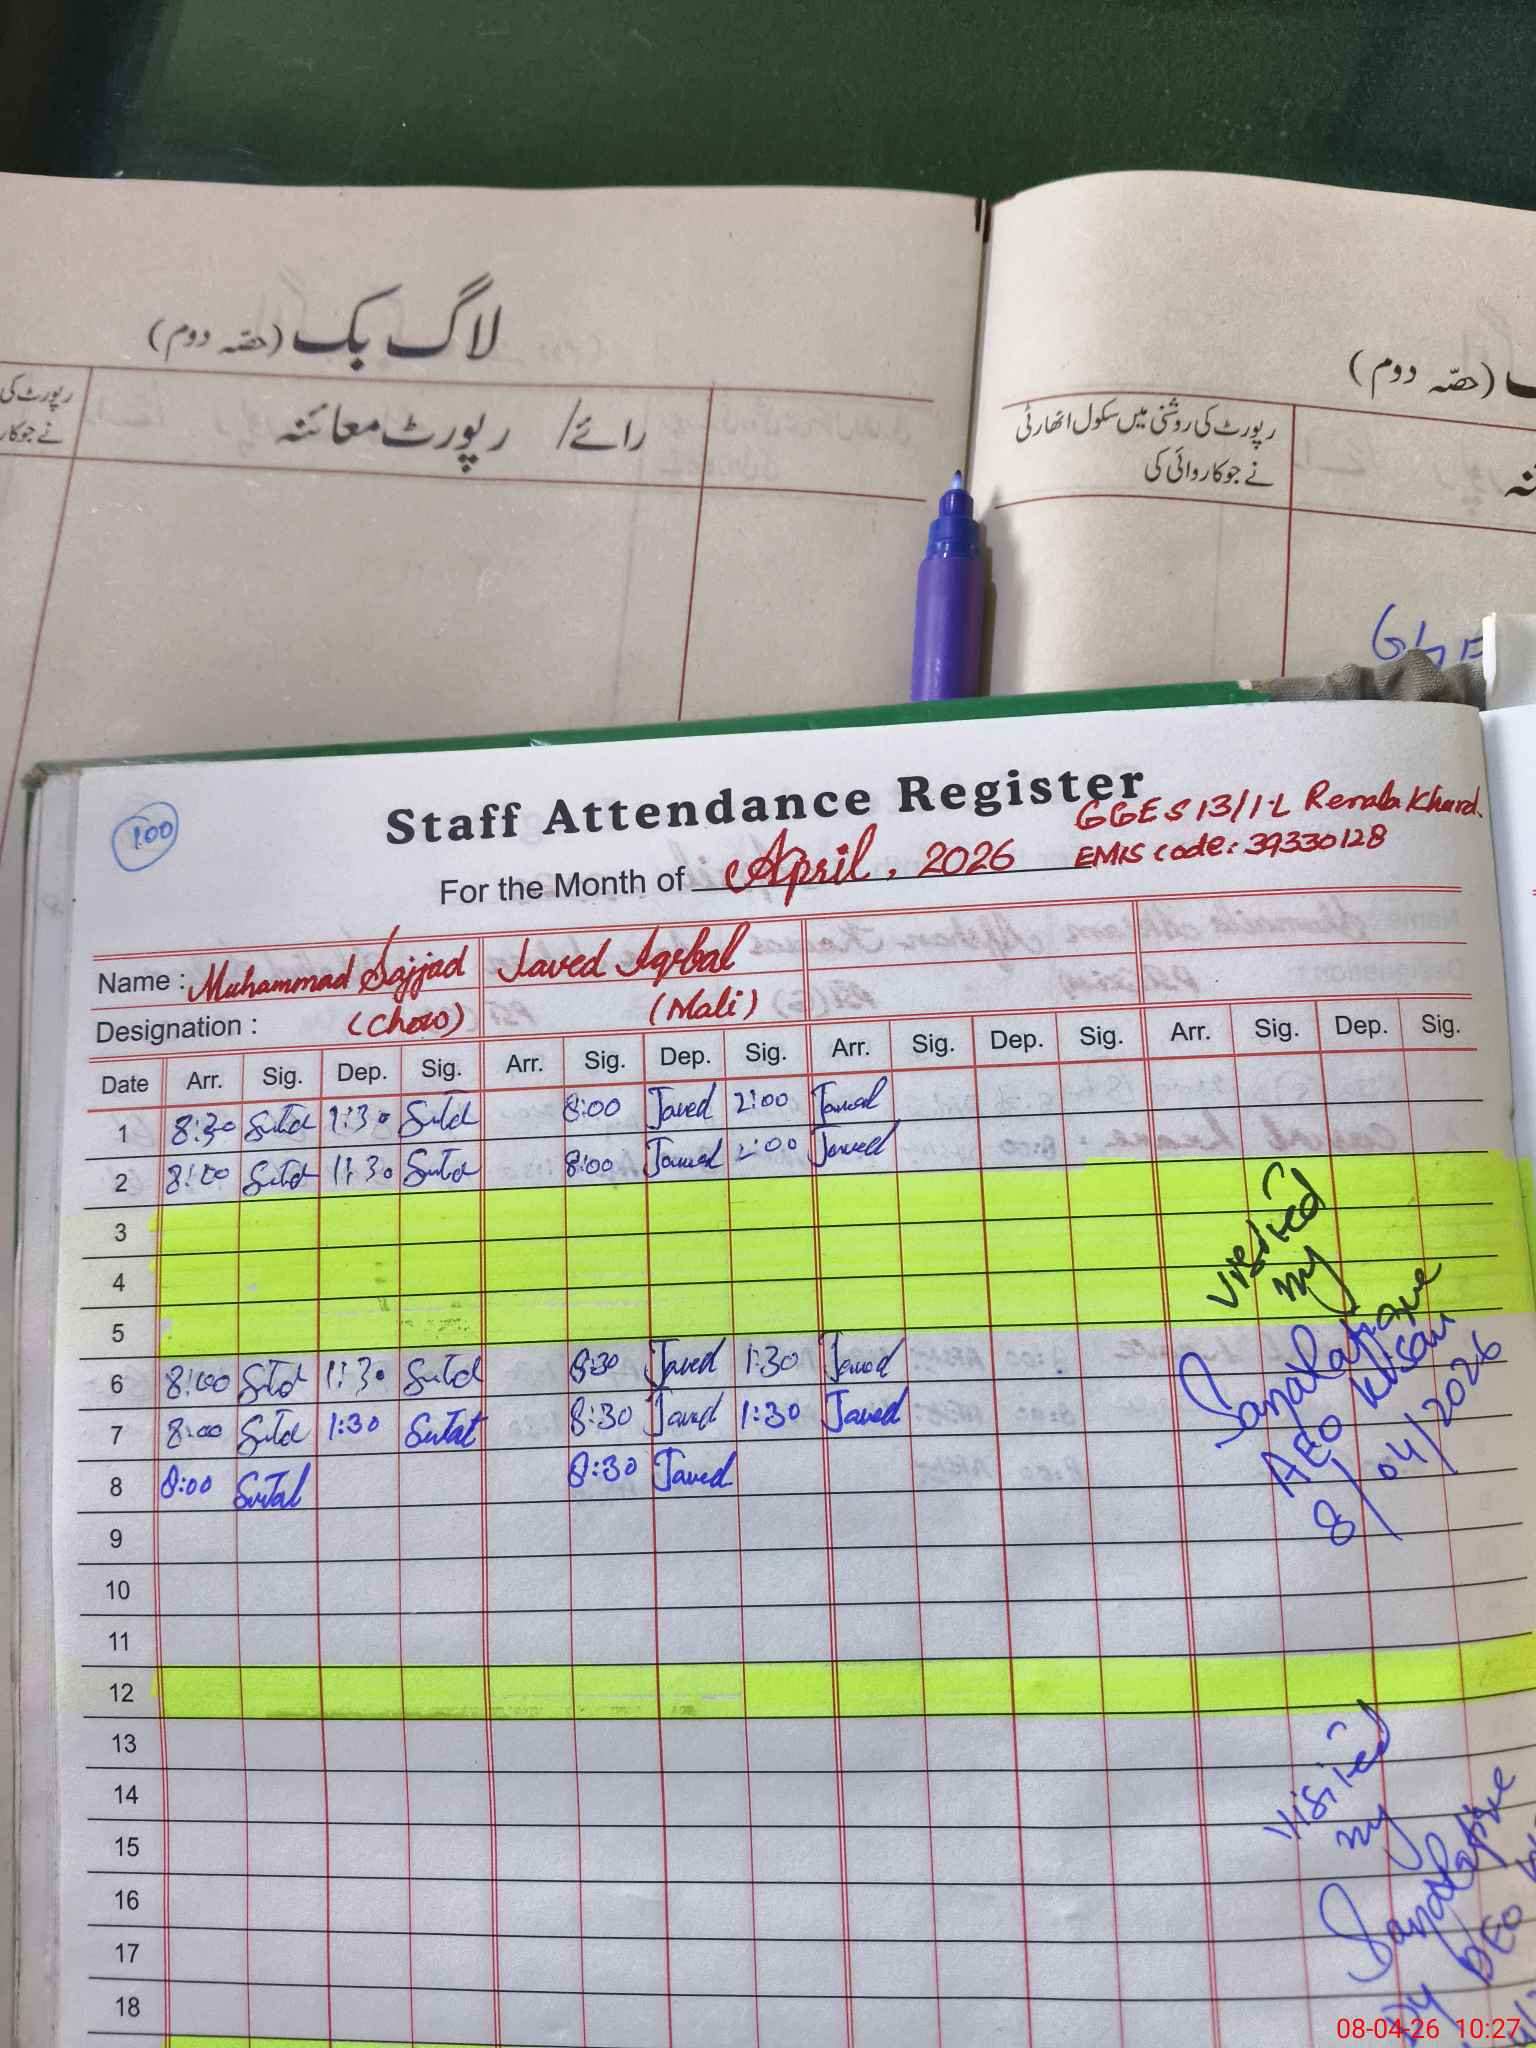 لاگ بک (حصّہ دوم)
رائے/ رپورٹ معائنہ
رپورٹ کی
نے جوکار
(حصّہ دوم)
رپورٹ کی روشنی میں سکول اتھارٹی
نے جوکاروائی کی
100
Staff Attendance Register
GGES 13/1-L Renala Khurd.
For the Month of April, 2026
EMIS code: 39330128
Name : Muhammad Sajjad Javed Iqbal
Designation : (Chow) (Mali)
Date Arr. Sig. Dep. Sig. Arr. Sig. Dep. Sig. Arr. Sig. Dep. Sig. Arr. Sig. Dep. Sig.
1 8:30 1:30 8:00 Javed 2:00 Javed
2 8:00 1:30 8:00 Javed 2:00 Javed
3
4
5
6 8:00 1:30 8:30 Javed 1:30 Javed
7 8:00 1:30 8:30 Javed 1:30 Javed
8 8:00 8:30 Javed
9
10
11
12
13
14
15
16
17
18
visited
my
AEO
8/04/2026
visited
my
Dy DEO
08-04-26 10:27